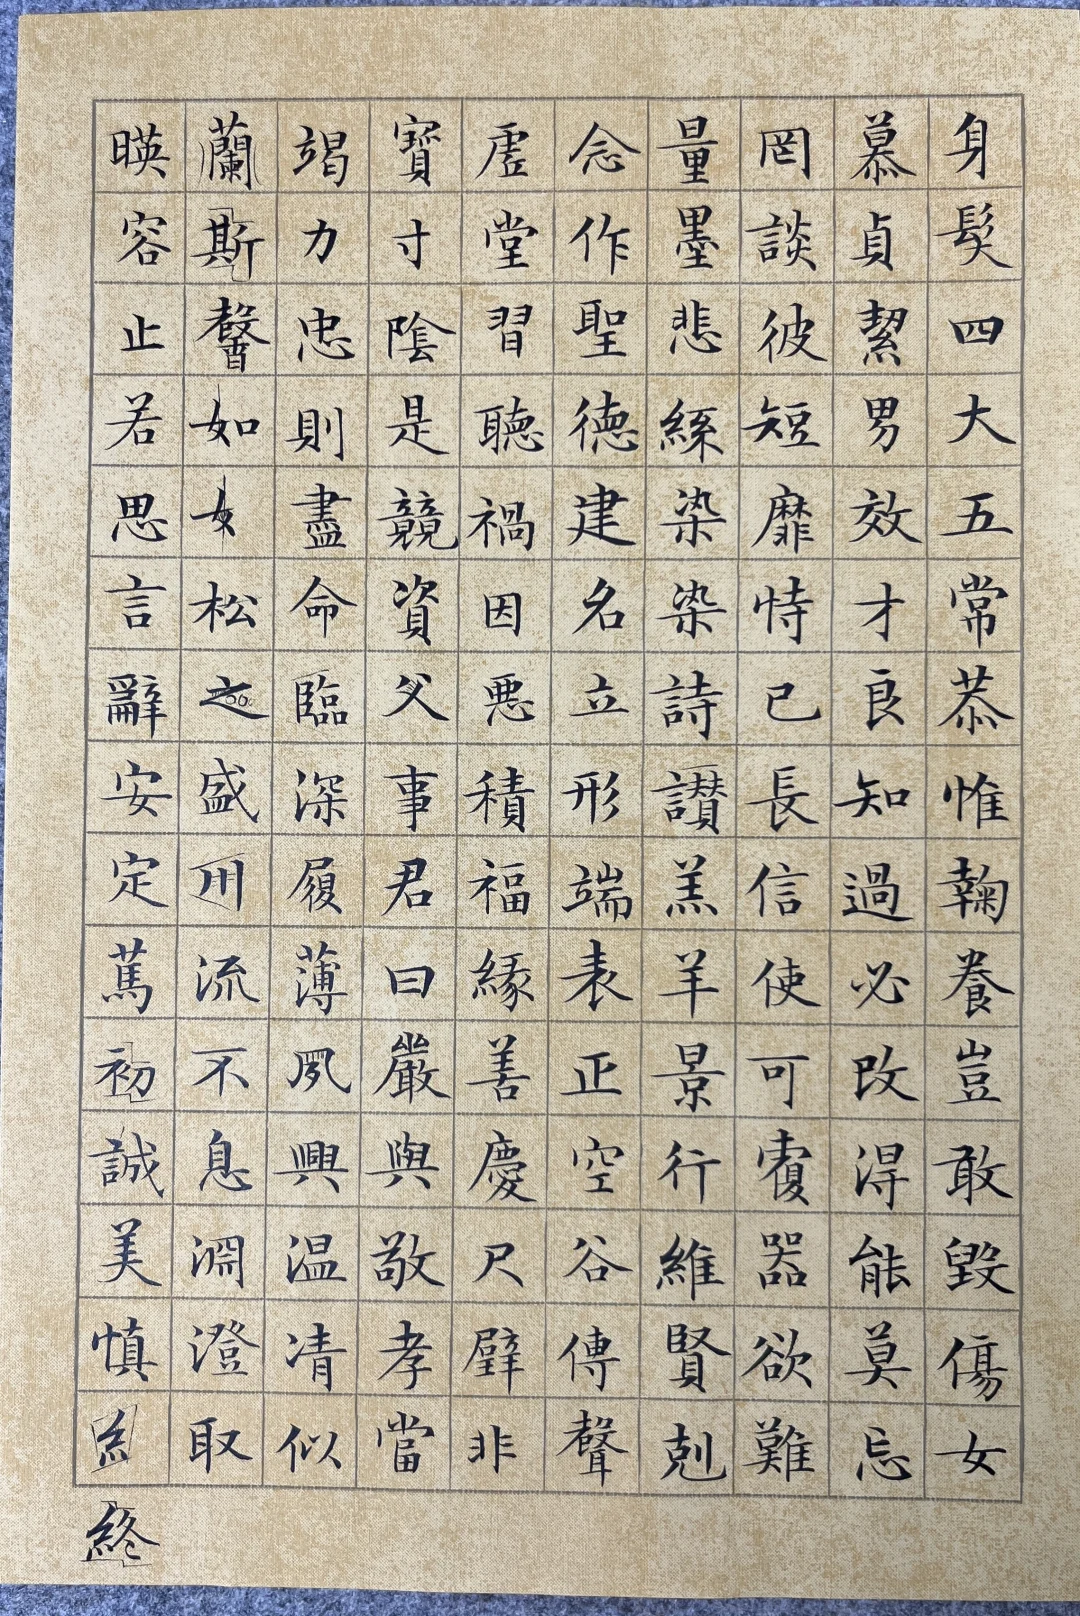 身髮四大五常恭惟鞠養豈敢毀傷女
慕貞絜男效才良知過必改得能莫忘
罔談彼短靡恃己長信使可覆器欲難
量墨悲絲染染詩讃羔羊景行維賢剋
念作聖徳建名立形端表正空谷傳聲
虛堂習聽禍因悪積福緣善慶尺璧非
寶寸陰是競資父事君曰嚴與敬孝當
竭力忠則盡命臨深履薄夙興温凊似
蘭斯馨如女松之盛川流不息淵澄取
暎容止若思言辭安定篤初誠美慎
終